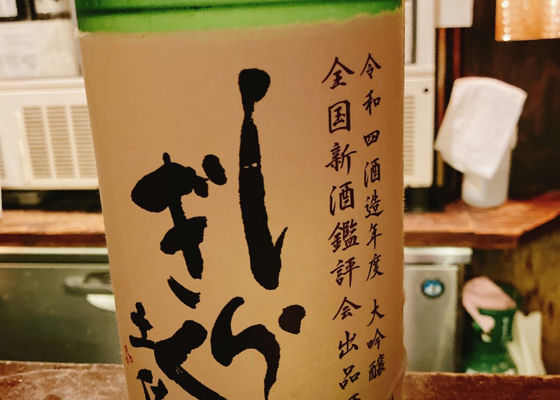 令和四酒造年度 大吟醸
全国新酒鑑評会出品
しら
ぎく